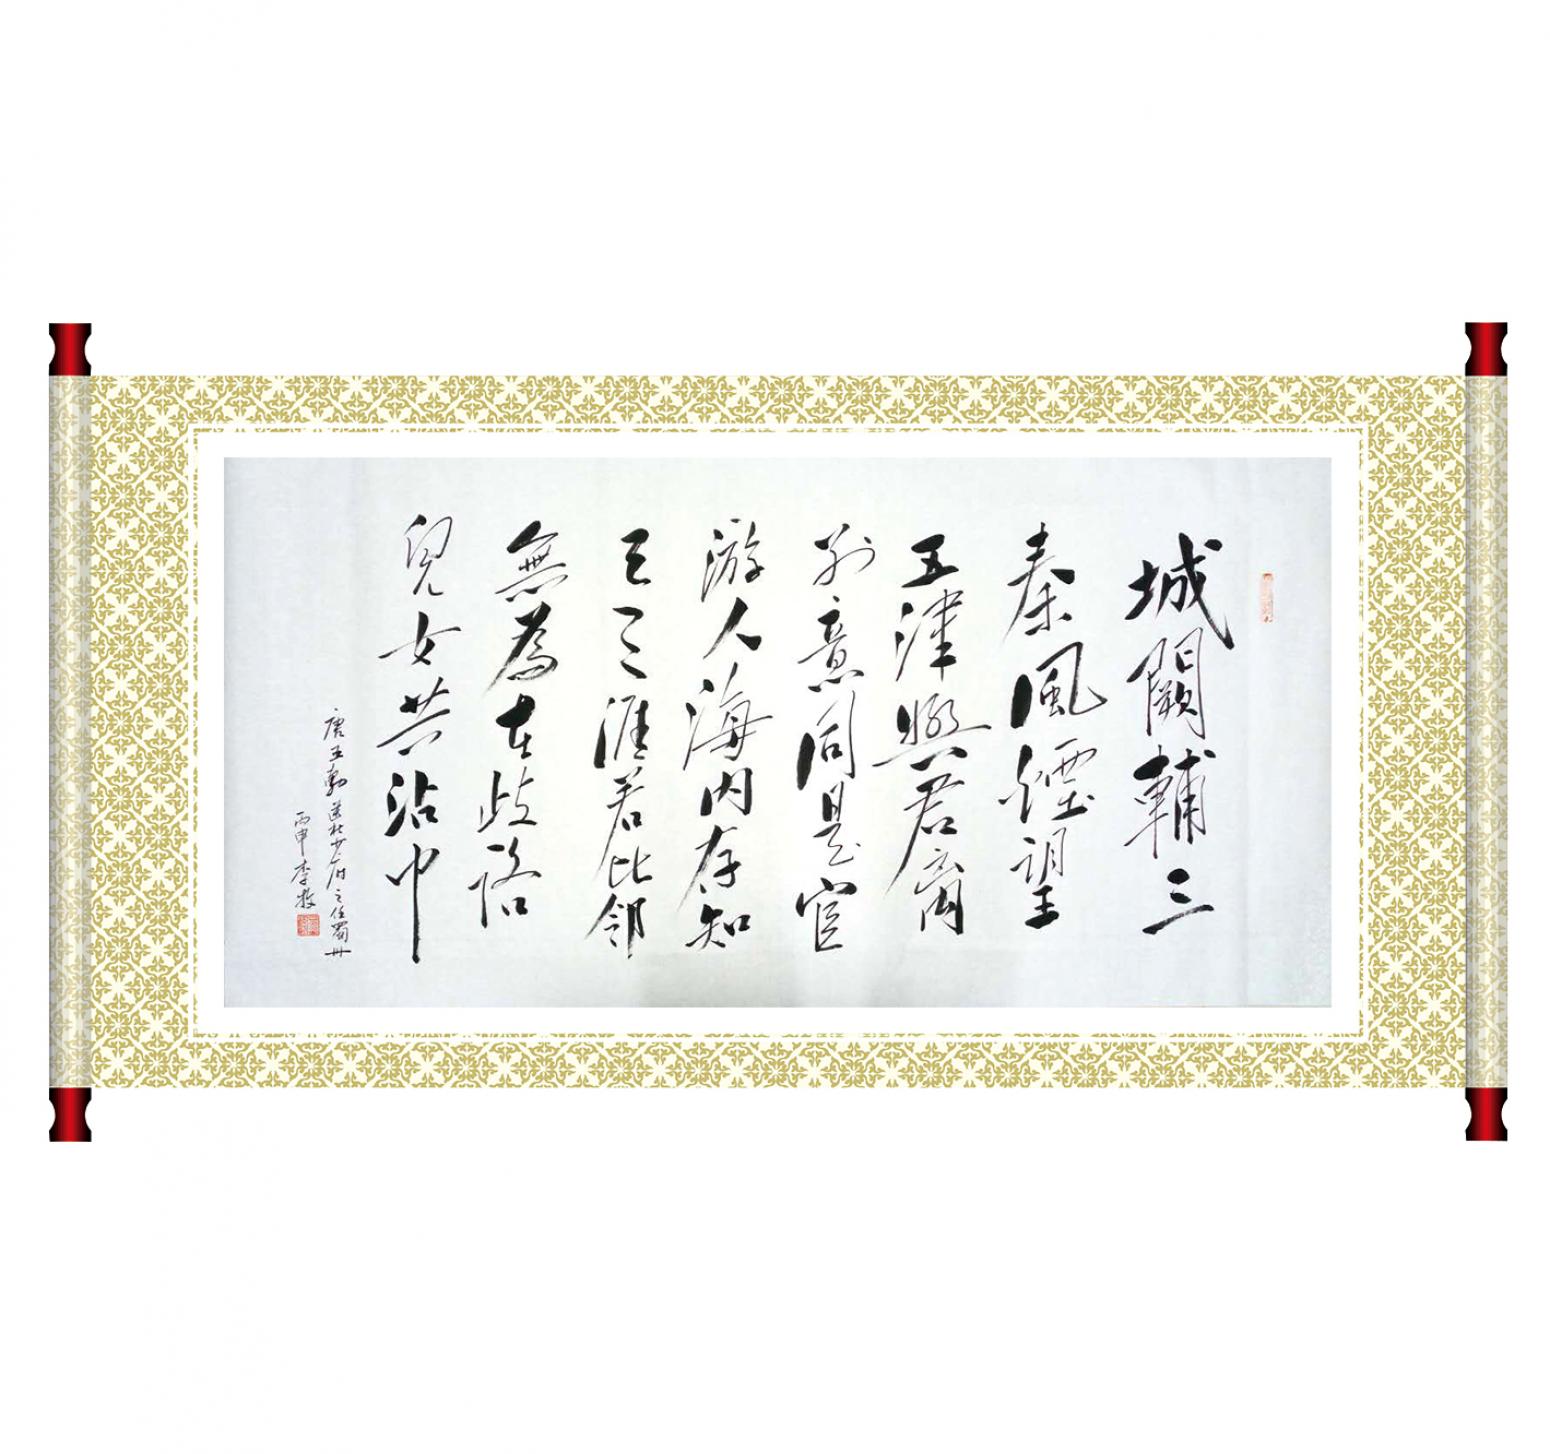 城闕輔三
秦風煙望
五津與君离
别意同是宦
游人海内存知
己天涯若比邻
無為在歧路
兒女共沾巾
唐王勃送杜少府之任蜀州
丙申李